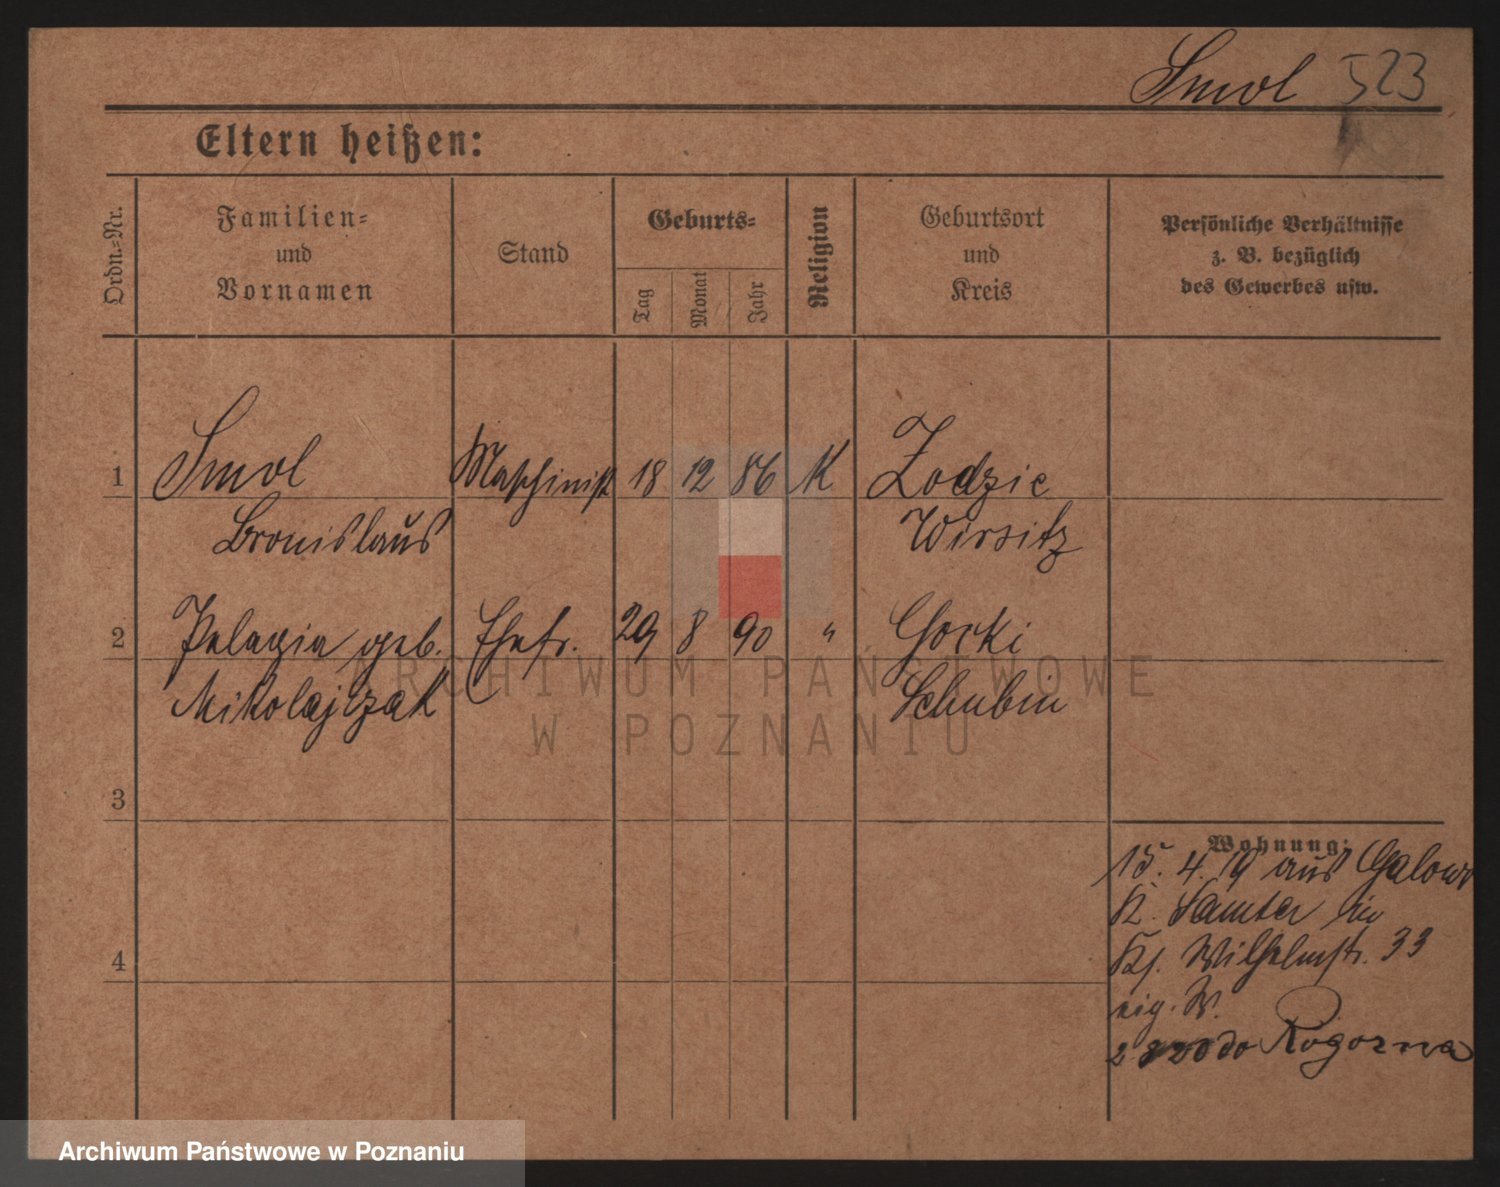 Smol 523
Eltern heißen:
Ordn.-Nr.
Familien-
und
Vornamen
Stand
Geburts-
Tag
Monat
Jahr
Religion
Geburtsort
und
Kreis
Persönliche Verhältnisse
z. B. bezüglich
des Gewerbes usw.
1 Smol Maschinist 18 12 86 K Zodzie
Bronislaus Wirsitz
2 Pelagia geb. Ehefr. 29 8 90 " Gorki
Mikolajczak Schubin
3
4
Wohnung:
15. 4. 19 aus Galowo
K. Samter in
Kf. Wilhelmstr. 33
eig. W.
do Rogozna
ARCHIWUM PAŃSTWOWE
W POZNANIU
Archiwum Państwowe w Poznaniu